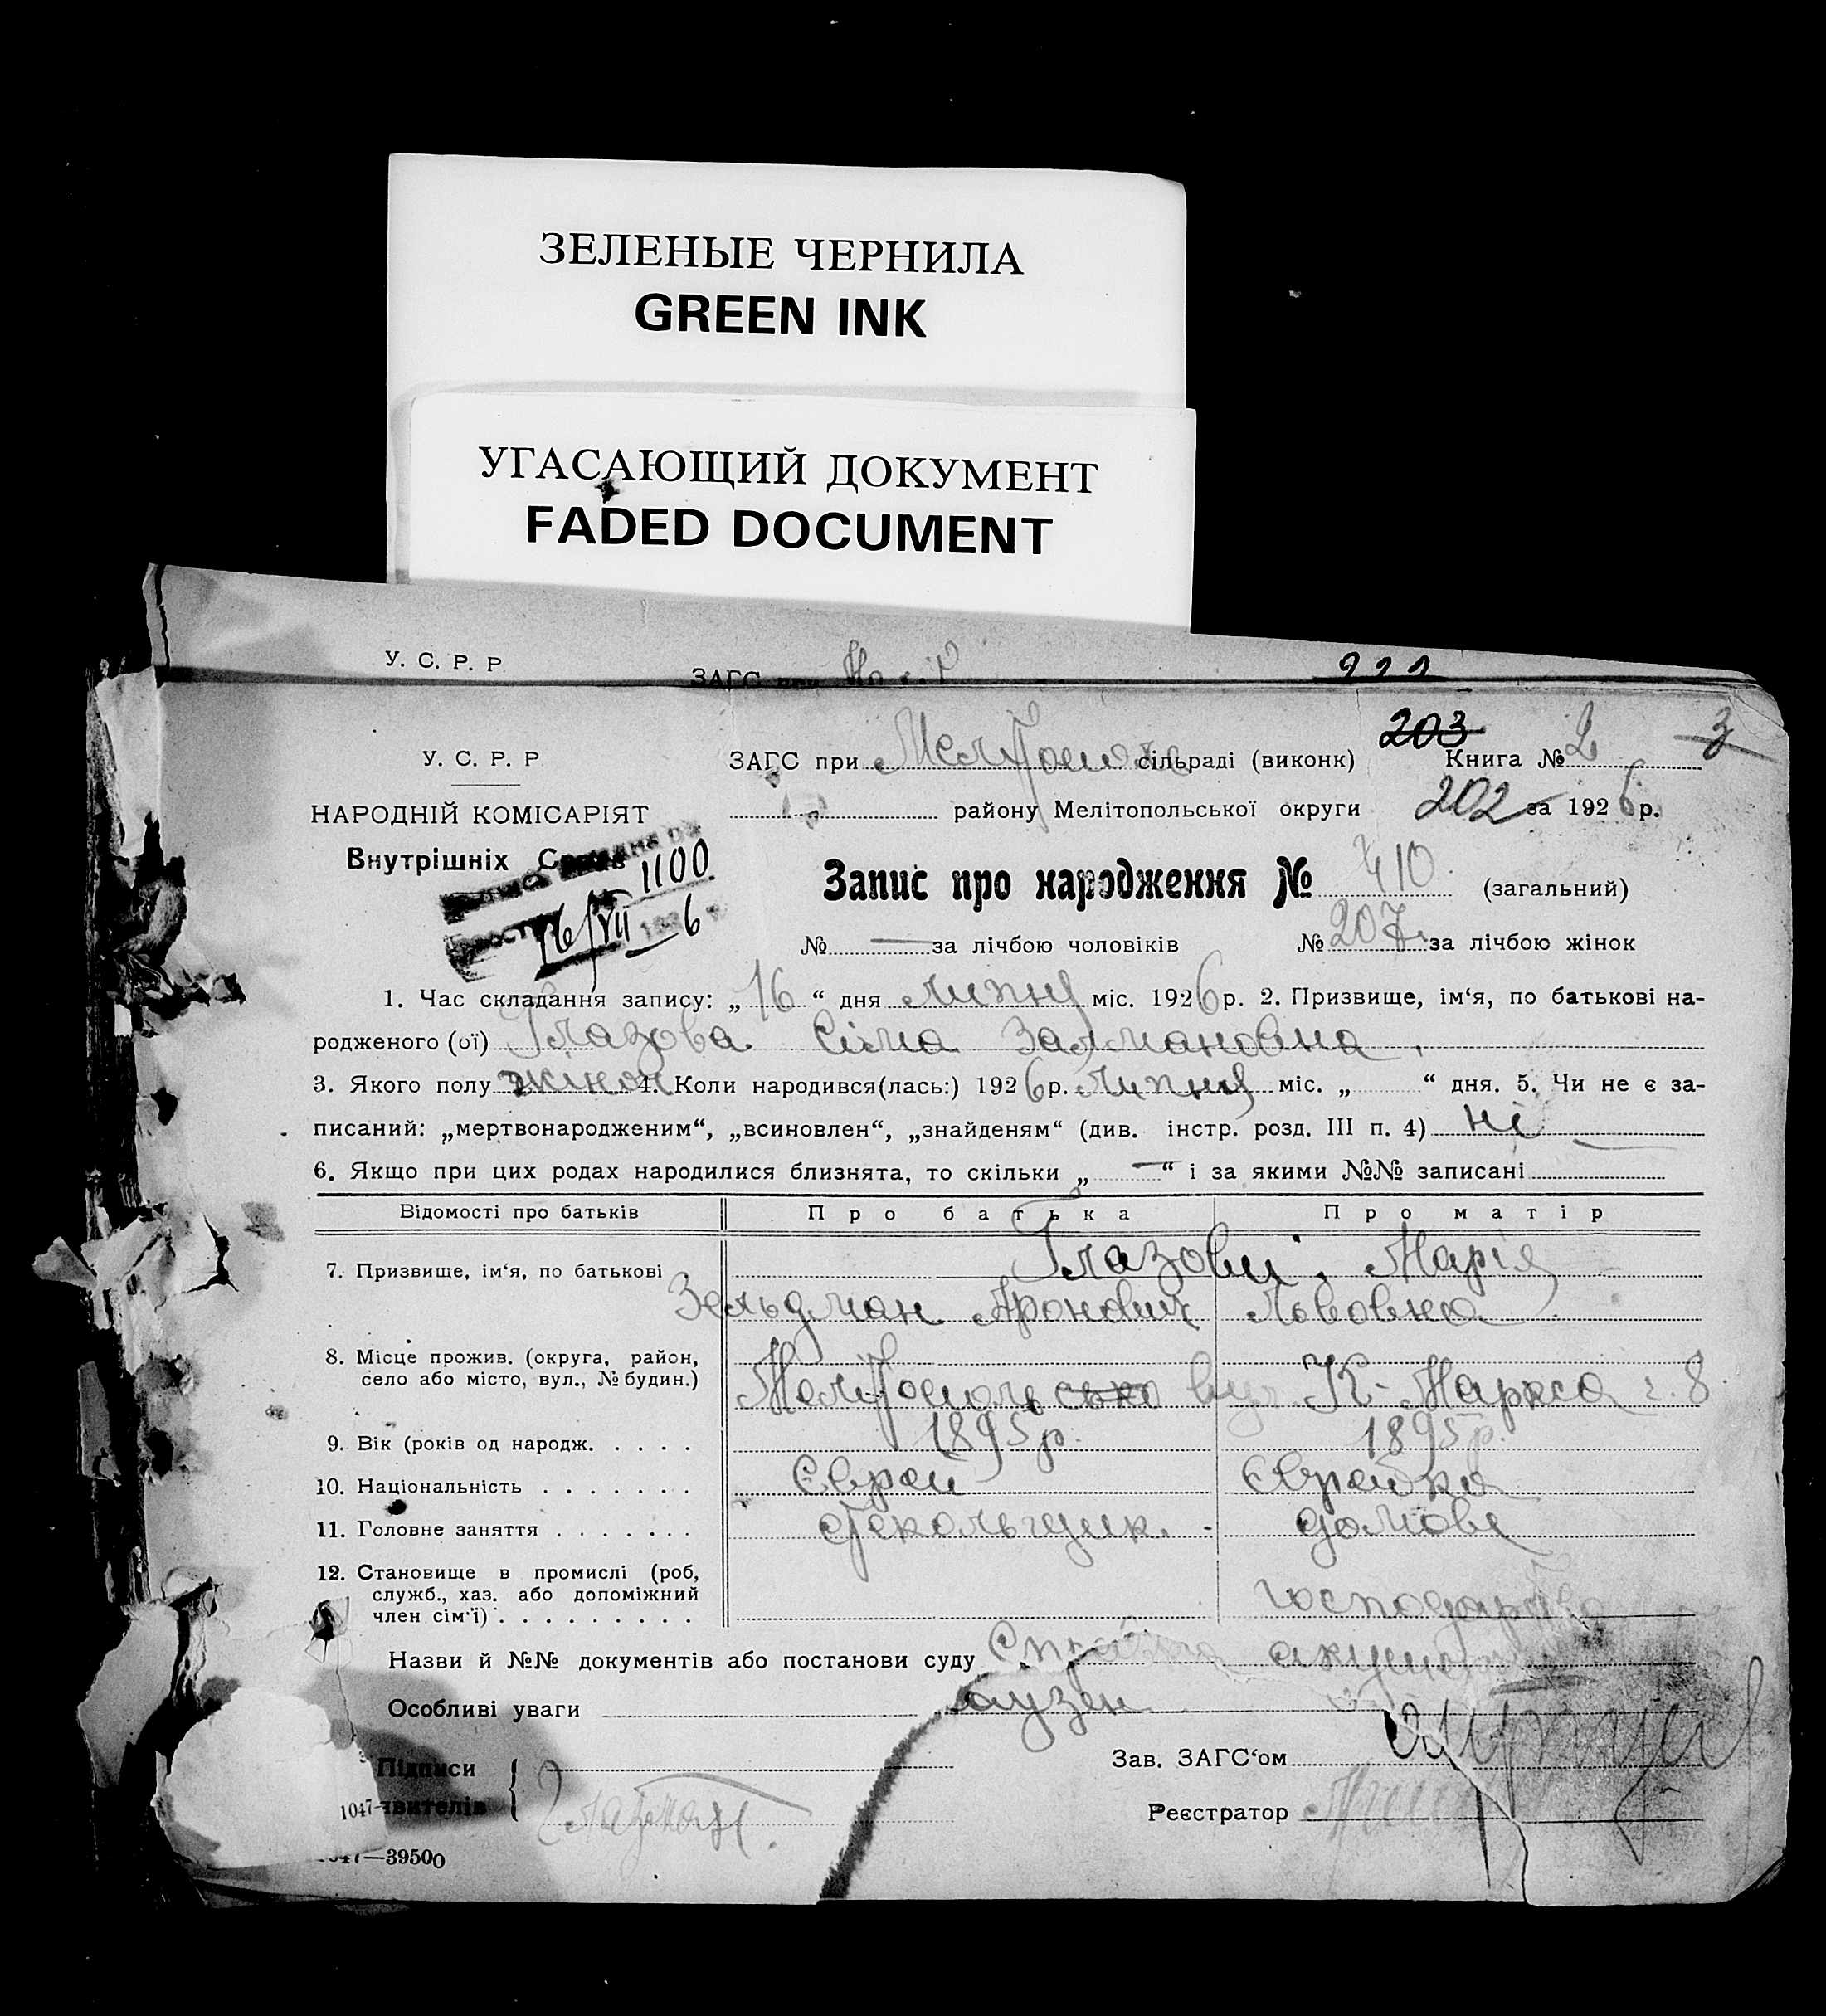 ЗЕЛЕНЫЕ ЧЕРНИЛА
GREEN INK
УГАСАЮЩИЙ ДОКУМЕНТ
FADED DOCUMENT
У. С. Р. Р
ЗАГС при
203 3
У. С. Р. Р ЗАГС при сільраді (виконк) Книга № 2
НАРОДНІЙ КОМІСАРІЯТ району Мелітопольської округи 202 за 1926 р.
Внутрішніх
1100
16/VII 1926
Запис про народження № 410 (загальний)
№ — за лічбою чоловіків № 207 за лічбою жінок
1. Час складання запису: „16“ дня Липня міс. 1926 р. 2. Призвище, ім‘я, по батькові на-
родженого (ої) Глазова Сіма Залмановна
3. Якого полу жіноч 4. Коли народився(лась:) 1926 р. Липня міс. „ “ дня. 5. Чи не є за-
писаний: „мертвонародженим“, „всиновлен“, „знайденям“ (див. інстр. розд. III п. 4) ні
6. Якщо при цих родах народилися близнята, то скільки „ — “ і за якими №№ записані
Відомості про батьків Про батька Про матір
7. Призвище, ім‘я, по батькові Глазови Марія
Зельдман Аронович Львовна
8. Місце прожив. (округа, район,
село або місто, вул., № будин.) Мелітополь вул К-Маркса ч. 8
9. Вік (років од народж. 1895 р. 1895 р.
10. Національність Єврей Єврейка
11. Головне заняття Стекольщик. домове
12. Становище в промислі (роб,
служб., хаз. або допоміжний господарство
член сім‘ї)
Назви й №№ документів або постанови суду
Особливі уваги
Підписи Зав. ЗАГС‘ом
явителів Реєстратор
1047-
1047—39500